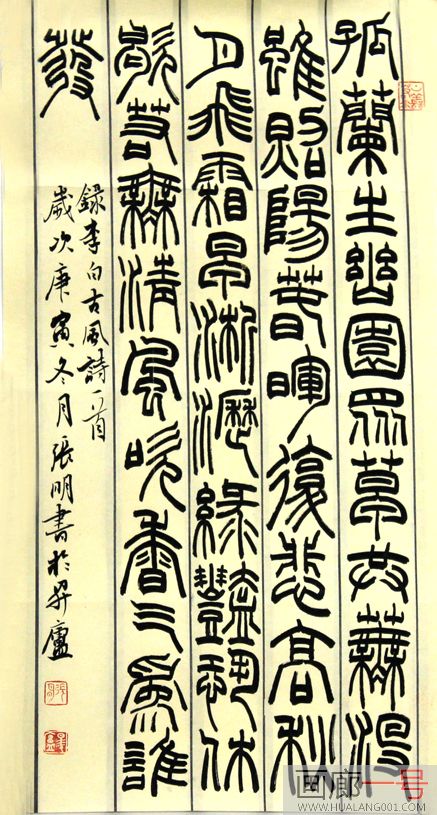 孤蘭生幽園眾草共蕪沒
雖照陽春暉復悲高秋
月飛霜早淅瀝綠豔恐休
歇若無清風吹香气為誰
發
錄李白古風詩一首
歲次庚寅冬月張明書於廬
画廊一号
WWW.HUALANG001.COM